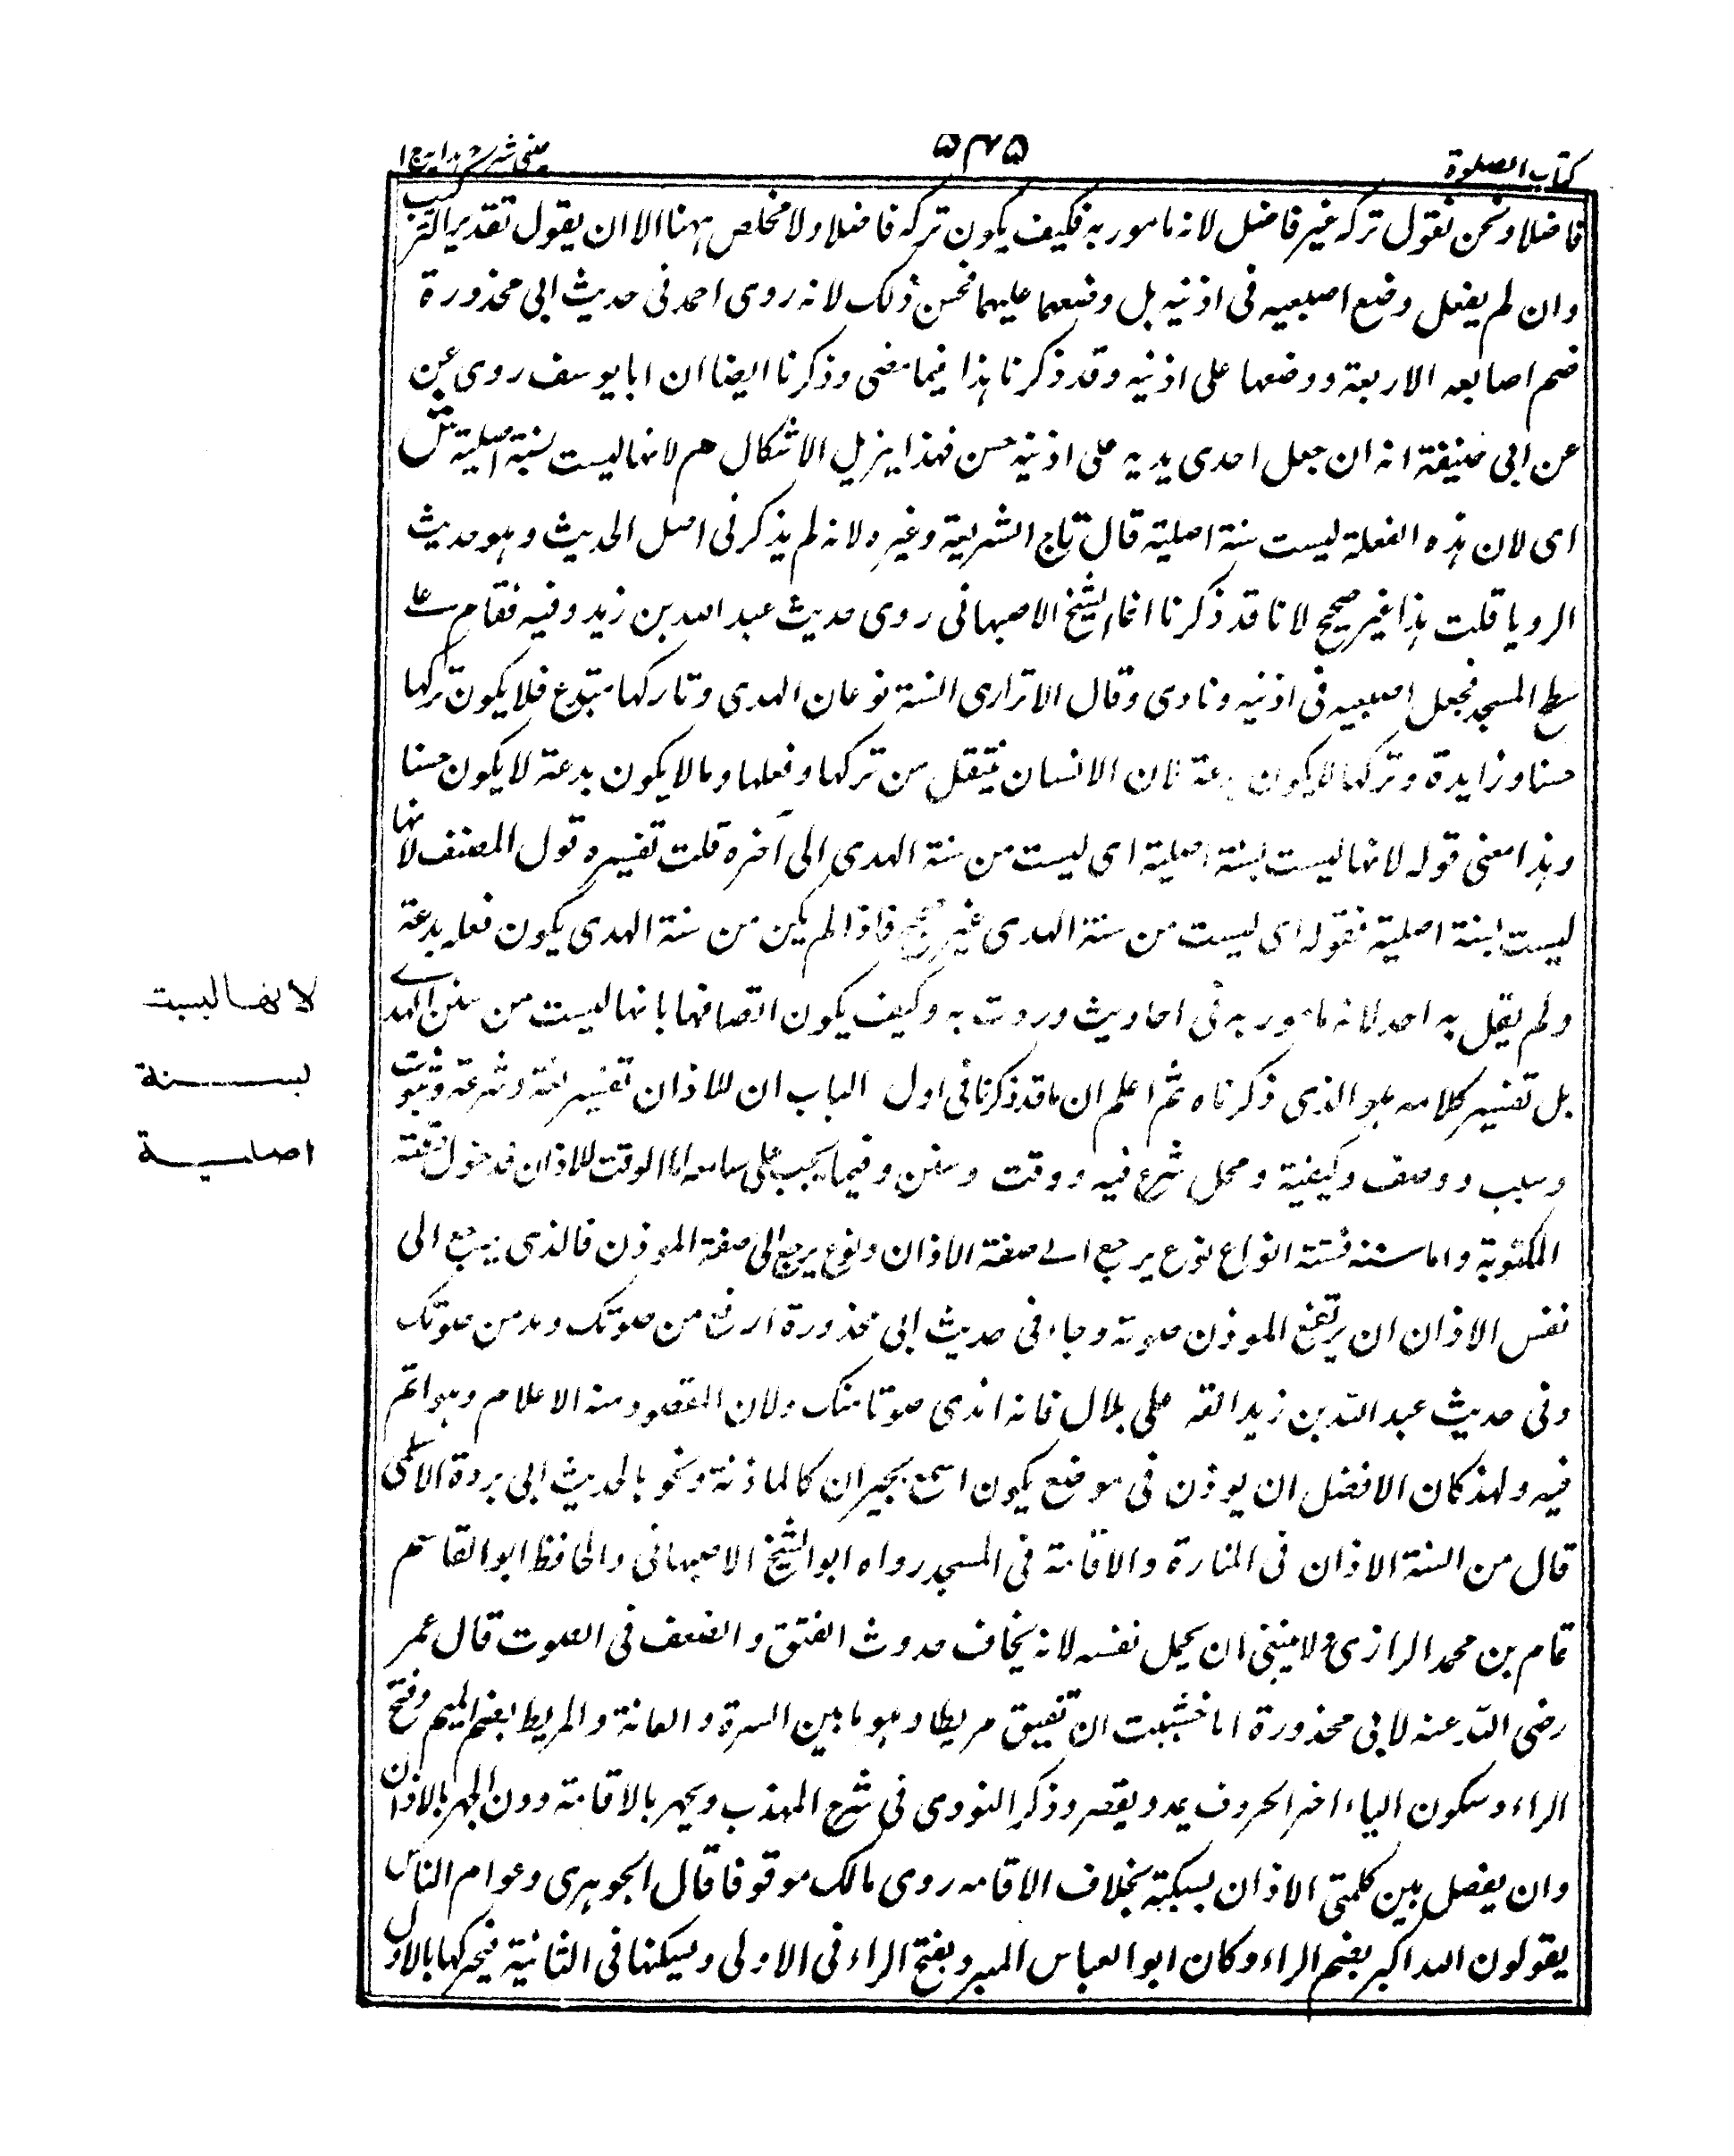 كتاب الصلوة
۵۴۵
عينى شرح هدايه ج ا
فاضلا ونحن نقول تركه غير فاضل لانه مامور به فكيف يكون تركه فاضلا ولا مخلص ههنا الا ان يقول تقدير التركيب
وان لم يفعل وضع اصبعيه فى اذنيه بل وضعهما عليهما فحسن ذلك لانه روى احمد فى حديث ابى محذورة
ضم اصابعه الاربعة ووضعها على اذنيه وقد ذكرنا هذا فيما مضى وذكرنا ايضا ان ابا يوسف روى عن
عن ابى حنيفة انه ان جعل احدى يديه على اذنيه حسن فهذا يزيل الاشكال هم لانها ليست بسنة اصلية ش
اى لان هذه الفعلة ليست سنة اصلية قال تاج الشريعة وغيره لانه لم يذكر فى اصل الحديث وهو حديث
الرويا قلت هذا غير صحيح لانا قد ذكرنا انفا الشيخ الاصبهانى روى حديث عبد الله بن زيد وفيه فقام على
سطح المسجد فجعل اصبعيه فى اذنيه ونادى وقال الاترارى السنة نوعان الهدى وتاركها مبتدع فلا يكون تركها
حسنا وزايدة وتركها لا يكون بدعة فان الانسان ينتقل من تركها وفعلها وما لا يكون بدعة لا يكون حسنا
وهذا معنى قوله لانها ليست بسنة اصلية اى ليست من سنة الهدى الى آخره قلت تفسيره قول المصنف لانها
ليست بسنة اصلية بقوله اى ليست من سنة الهدى غير صحيح فاذا لم يكن من سنة الهدى يكون فعله بدعة
ولم يقل به احد لانه مامور به فى احاديث وردت به وكيف يكون اتصافها بانها ليست من سنن الهدى
بل تفسير كلامه هو الذى ذكرناه ثم اعلم ان ما قد ذكرنا فى اول الباب ان للاذان تفسير لغة وشرعة وثبوت
وسبب ووصف وكيفية ومحل شرع فيه ووقت وسنن وفيما يجب على سامعه اما الوقت للاذان فدخول وقته
المكتوبة واما سننه فستة انواع نوع يرجع الى صفة الاذان ونوع يرجع الى صفة الموذن فالذى يرجع الى
نفس الاذان ان يرتفع الموذن صوته وجاء فى حديث ابى محذورة ارفع من صوتك ومد من صوتك
وفى حديث عبد الله بن زيد القه على بلال فانه اندى صوتا منك ولان المقصود منه الاعلام وهو اتم
فيه ولهذ كان الافضل ان يوذن فى موضع يكون اسمع بجيران كالماذنة ونحو بالحديث ابى بردة الاسلمى
قال من السنة الاذان فى المنارة والاقامة فى المسجد رواه ابو الشيخ الاصبهانى والحافظ ابو القاسم
تمام بن محمد الرازى ولا ينبغى ان يحمل نفسه لانه يخاف حدوث الفتق والضعف فى الصوت قال عمر
رضى الله عنه لابى محذورة اما خشيت ان تفيق مريطا وهو ما بين السرة والعانة والمريط بضم الميم وفتح
الراء وسكون الياء اخر الحروف يمد ويقصر وذكر النووى فى شرح المهذب ويجهر بالاقامة دون الجهر بالاذان
وان يفصل بين كلمتى الاذان بسكتة بخلاف الاقامه روى مالك موقوفا قال الجوهرى وعوام الناس
يقولون الله اكبر بضم الراء وكان ابو العباس المبرد بفتح الراء فى الاولى وسيكنها فى الثانية فيحركها بالاول
لانها ليست
بسنة
اصلية